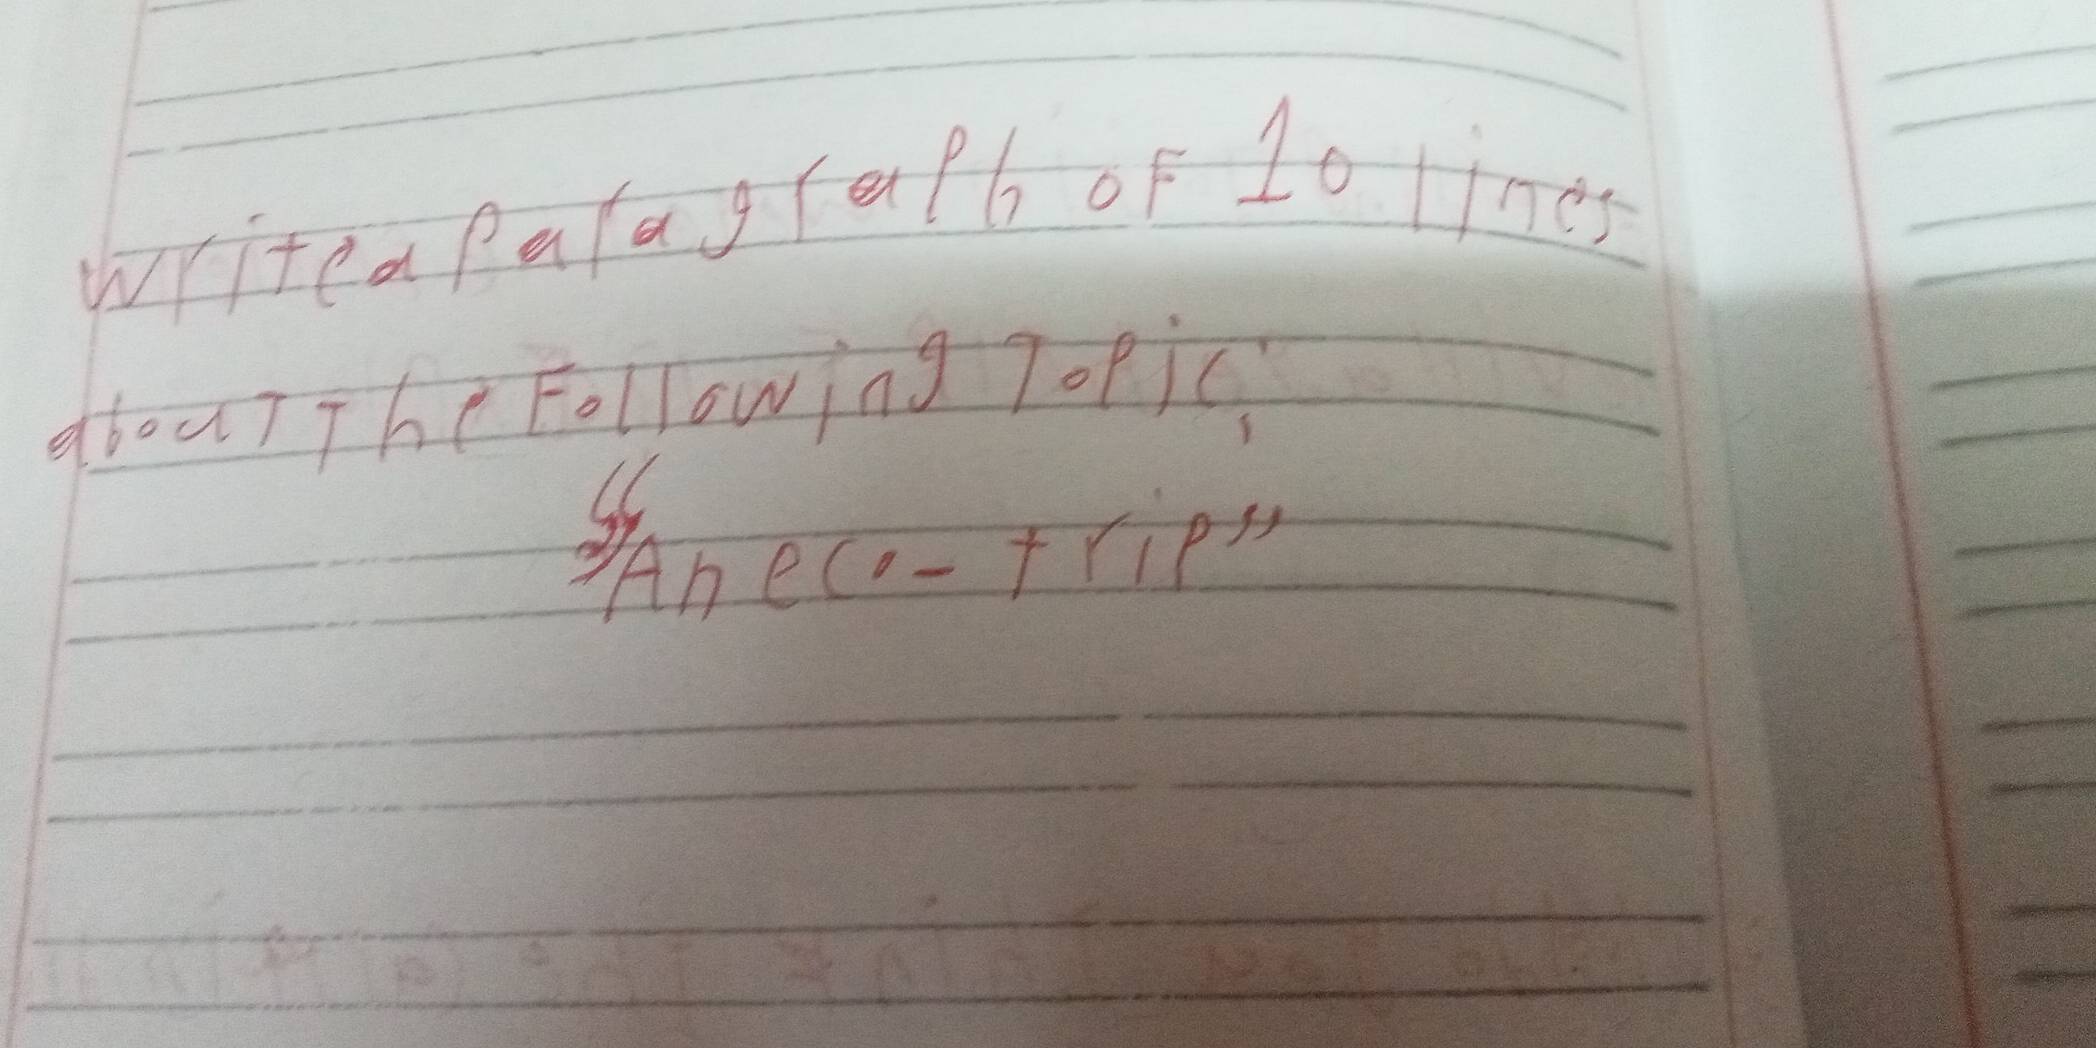 Write a Paragraph of 10 lines
about The Following Topic,
"An eco-trip"